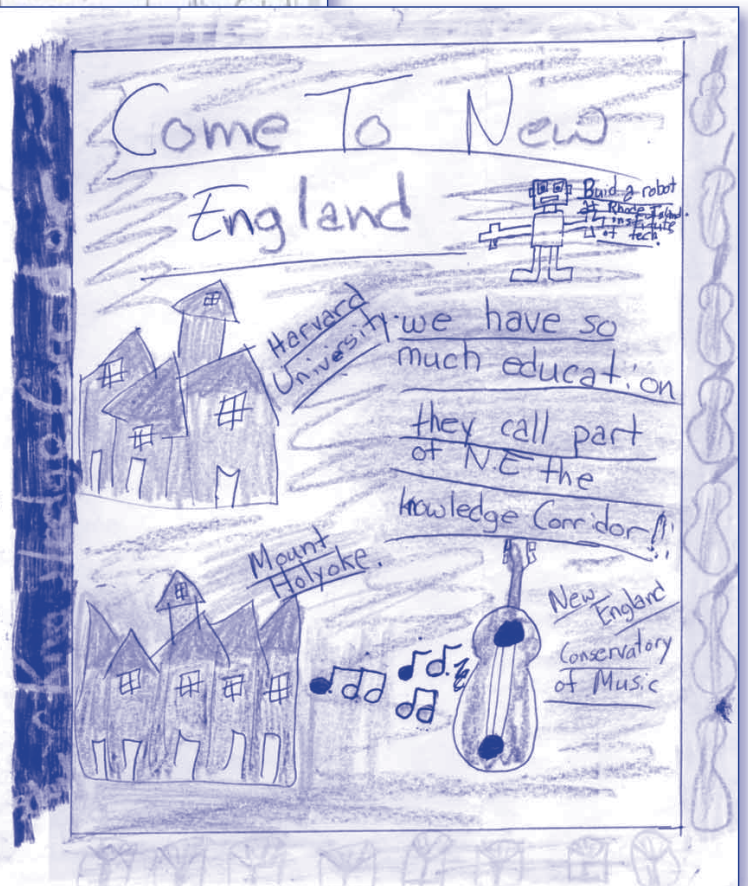 Come To New
England
Buid a robot
at Rhode Island
institute
of tech.
Harvard
University
we have so
much education
they call part
of N.E the
knowledge Corridor!!
Mount
Holyoke.
New
England
Conservatory
of Music